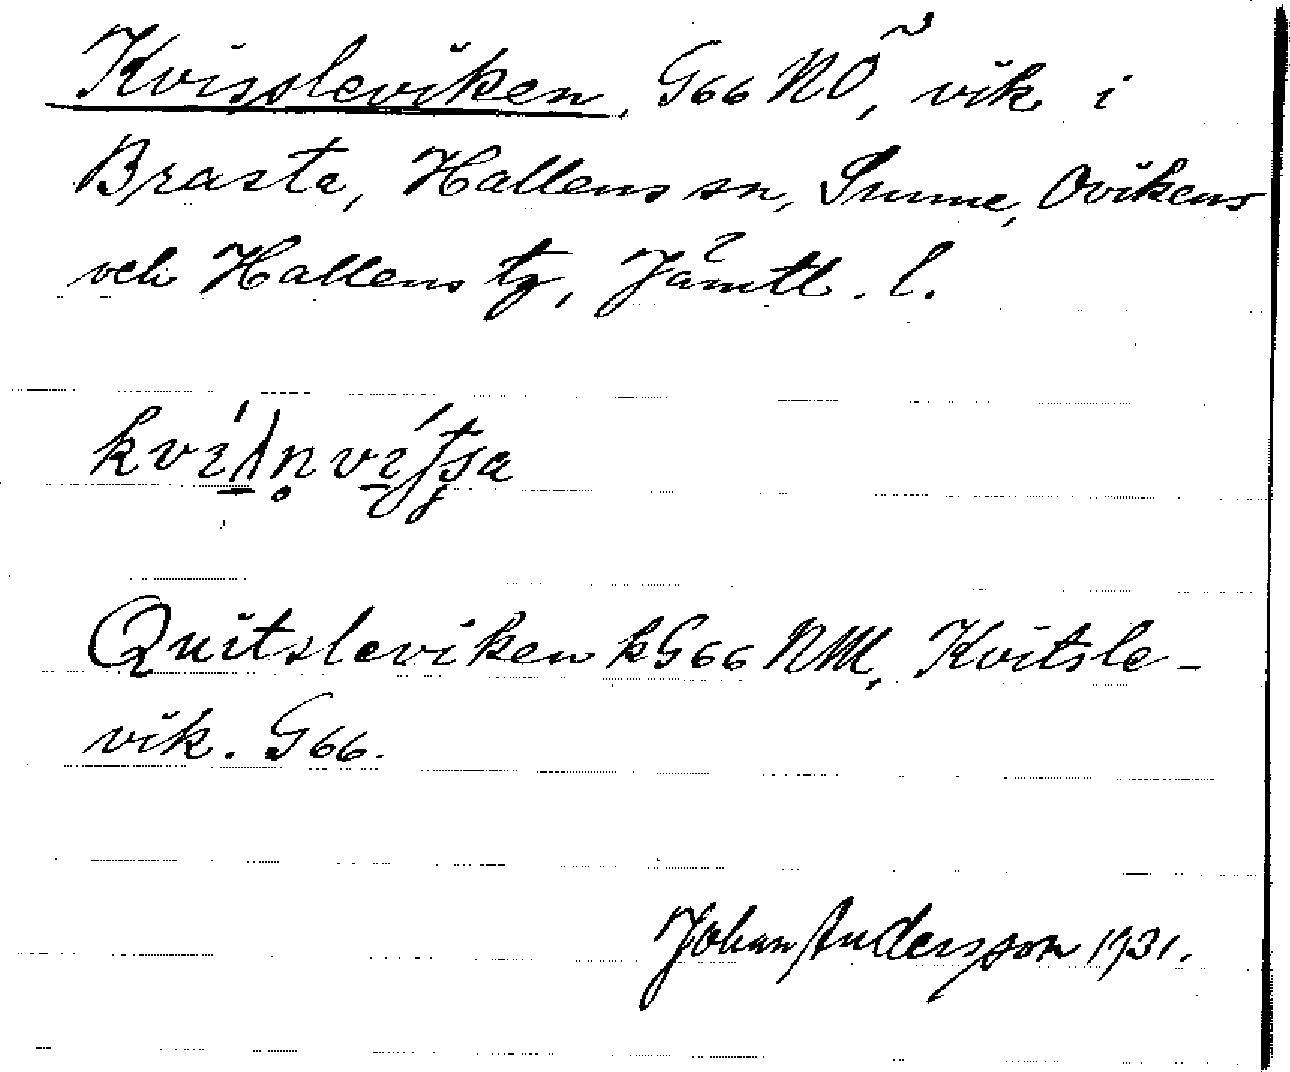 Kvissleviken, G66 NÖ, vik i
Brasta, Hallens sn, Sunne, Ovikens
och Hallens tg, Jämtl. l.
Quitsleviken kG66 NM, Kvitsle-
vik. G66.
Johan Andersson 1931.